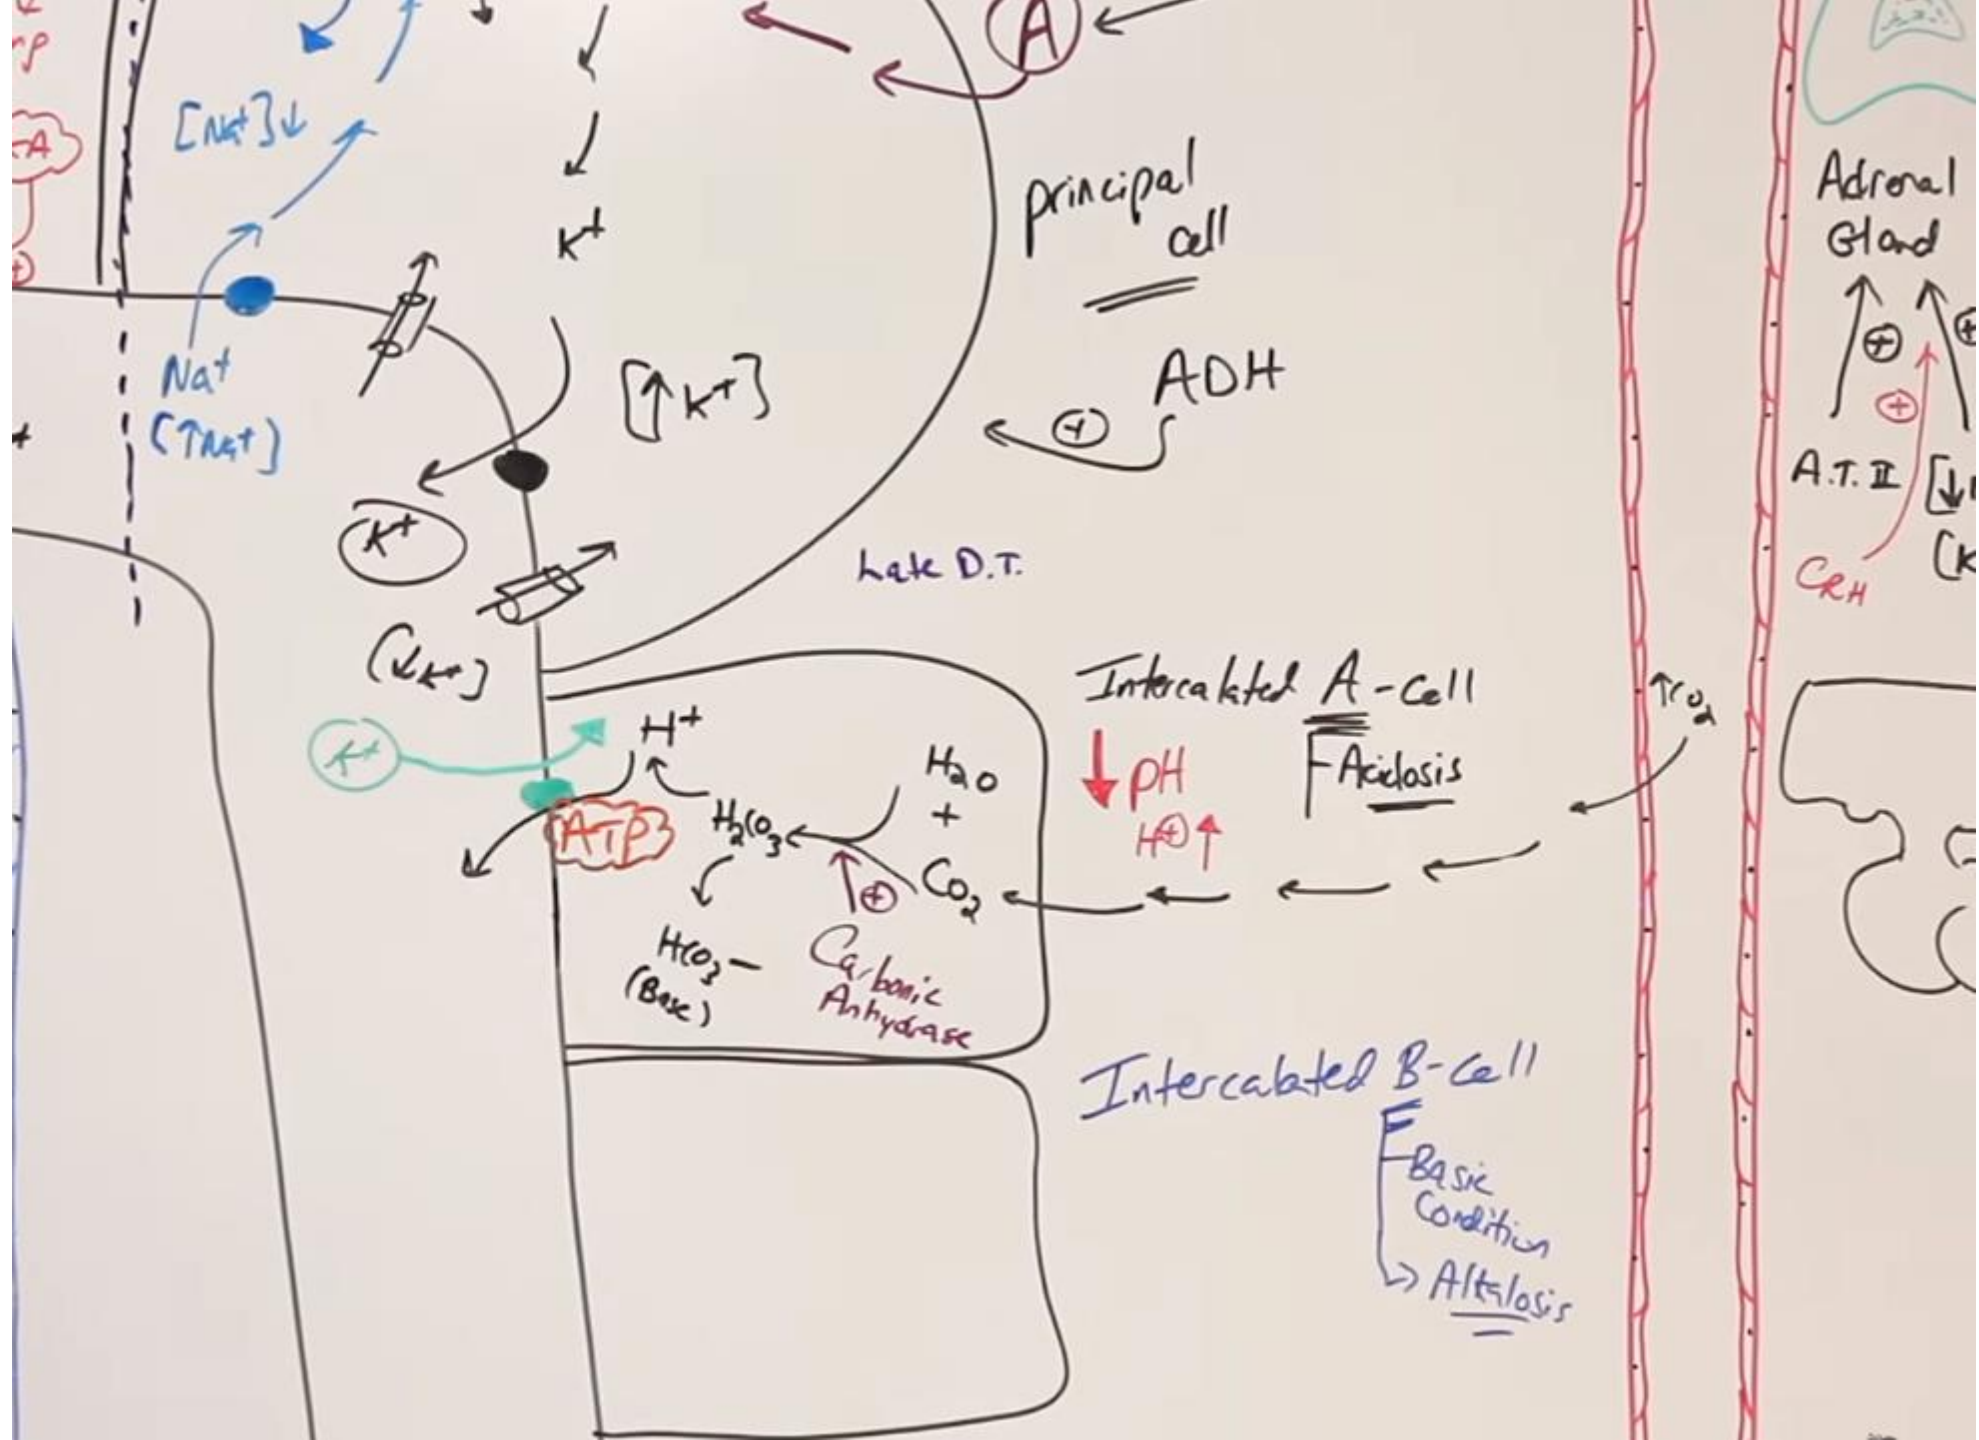 A
[Na+]↓
principal
cell
K+
Adrenal
Gland
Na+
[↑Na+]
[↑K+]
ADH
+
+
+
K+
A.T. II
CRH
Late D.T.
[↓K+]
Intercalated A-Cell
↑CO2
Acidosis
↓ pH
H+ ↑
K+
H+
H2O
+
H2CO3
ATP
CO2
+
HCO3-
(Base)
Carbonic
Anhydrase
Intercalated B-Cell
Basic
Condition
→ Alkalosis